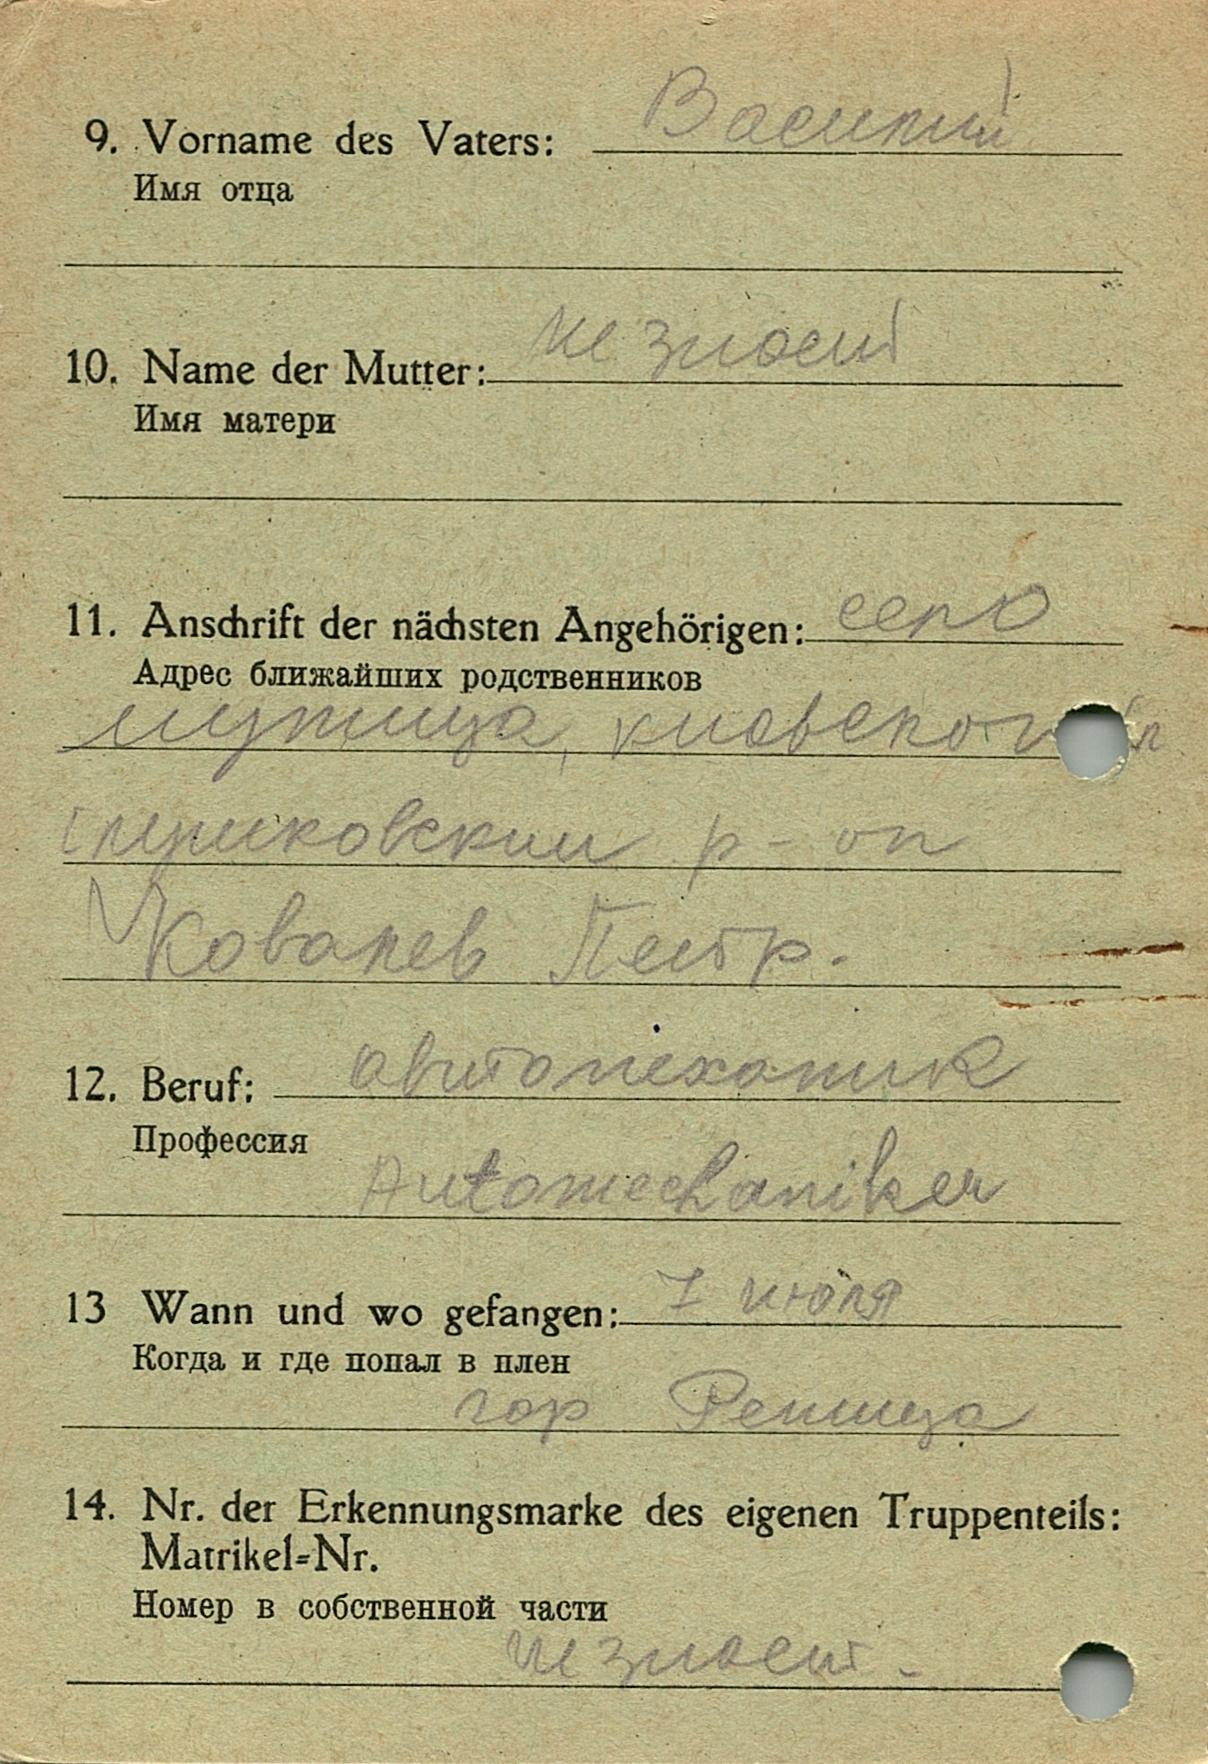 9. Vorname des Vaters: Василий
Имя отца
10. Name der Mutter: не знает
Имя матери
11. Anschrift der nächsten Angehörigen: село
Адрес ближайших родственников
киевской
р-он
Ковалев Петр.
12. Beruf: автомеханик
Профессия
Automechaniker
13 Wann und wo gefangen: 7 июля
Когда и где попал в плен
гор
14. Nr. der Erkennungsmarke des eigenen Truppenteils:
Matrikel-Nr.
Номер в собственной части
не знает -